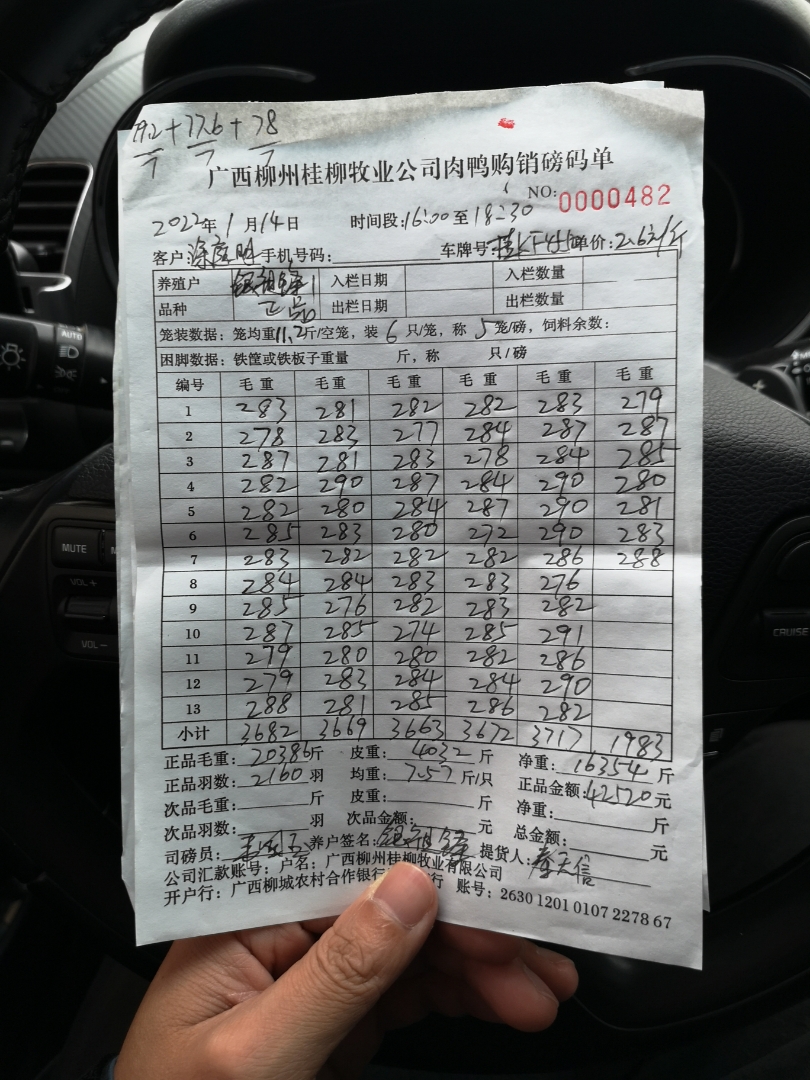 +77.6+78
广西柳州桂柳牧业公司肉鸭购销磅码单
NO: 0000482
2022年1月14日 时间段:16:00至18:30
客户: 手机号码: 车牌号: 单价:2.6元/斤
养殖户 入栏日期 入栏数量
品种 正品 出栏日期 出栏数量
笼装数据: 笼均重11.2斤/空笼, 装6只/笼, 称5笼/磅, 饲料余数:
困脚数据: 铁筐或铁板子重量 斤, 称 只/磅
编号 毛重 毛重 毛重 毛重 毛重 毛重
1 283 281 282 282 283 279
2 278 283 277 284 287 287
3 287 281 283 278 284 285
4 282 290 287 284 290 280
5 282 280 284 287 290 281
6 285 283 280 272 290 283
7 283 282 282 282 286 288
8 284 284 283 283 276
9 285 276 282 283 282
10 287 285 274 285 291
11 279 280 280 282 286
12 279 283 284 284 290
13 288 281 285 286 282
小计 3682 3669 3663 3672 3717 1983
正品毛重: 20386斤 皮重: 4032斤 净重: 16354斤
正品羽数: 2160羽 均重: 7.57斤/只 正品金额: 42520元
次品毛重: 斤 皮重: 斤 净重: 斤
次品羽数: 羽 次品金额: 元 总金额: 元
司磅员: 养户签名: 提货人: 秦天信
公司汇款账号: 户名: 广西柳州桂柳牧业有限公司
开户行: 广西柳城农村合作银行 行 账号: 2630 1201 0107 2278 67
MUTE
VOL+
VOL−
AUTO
CRUISE